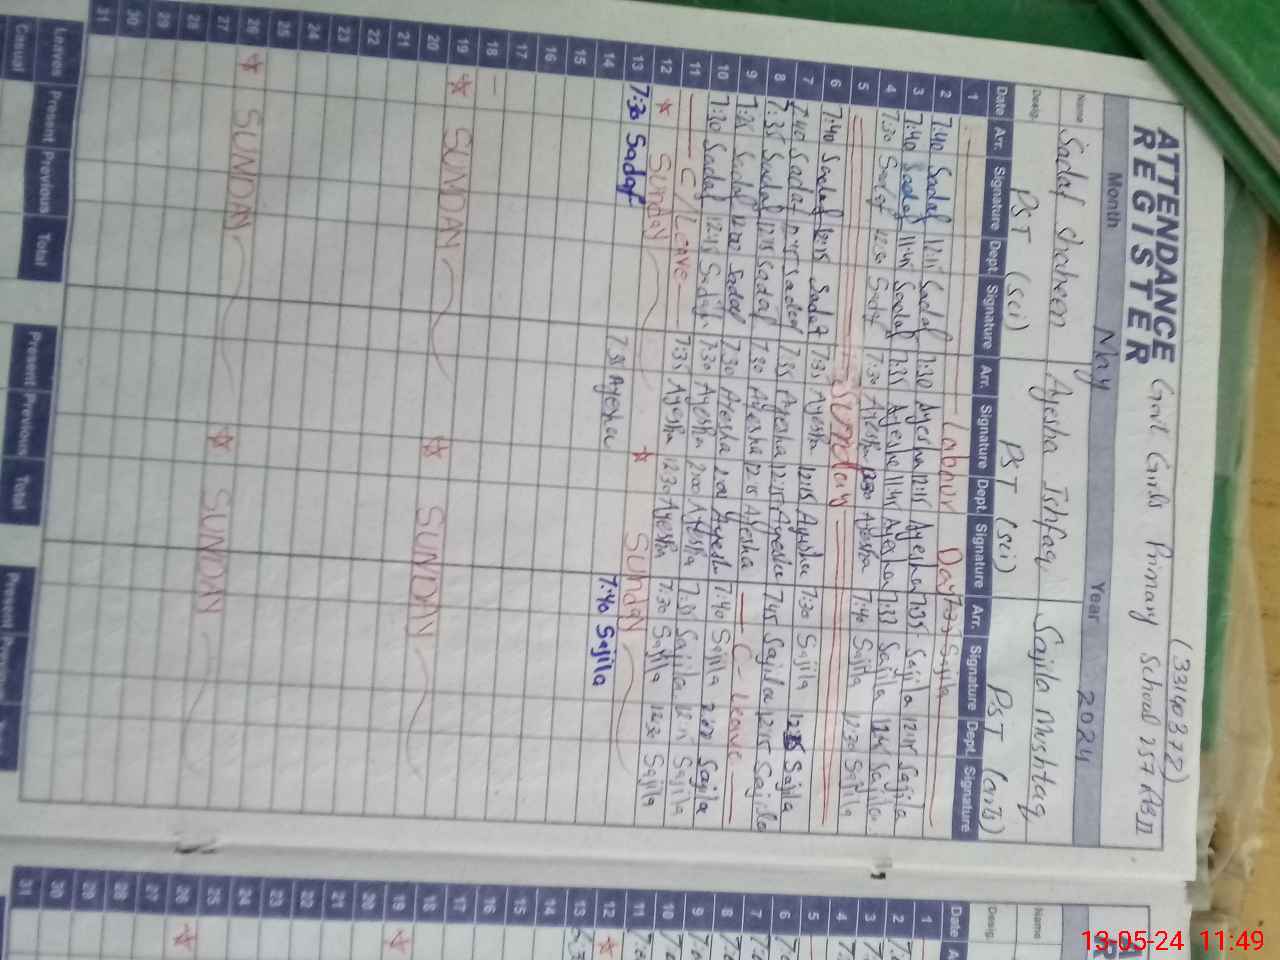 (33140372)
ATTENDANCE REGISTER Govt Girls Primary School 257 RB II
Month May Year 2024
Name Sadaf Shaheen Ayesha Ishfaq Sajila Mushtaq
Desig. PST (sci) PST (sci) PST (arts)
Date Arr. Signature Dept. Signature Arr. Signature Dept. Signature Arr. Signature Dept. Signature
1 Labour Day
2 7:40 Sadaf 12:15 Sadaf 7:30 Ayesha 12:15 Ayesha 7:35 Sajila 12:15 Sajila
3 7:40 Sadaf 11:45 Sadaf 7:35 Ayesha 11:45 Ayesha 7:33 Sajila Sajila
4 7:30 Sadaf 12:30 Sadaf 7:30 Ayesha 12:30 Ayesha 7:40 Sajila 12:30 Sajila
5 Sunday
6 7:40 Sadaf 12:15 Sadaf 7:35 Ayesha 12:15 Ayesha 7:30 Sajila Sajila
7 7:40 Sadaf Sadaf 7:35 Ayesha 12:15 Ayesha 7:45 Sajila 12:15 Sajila
8 7:35 Sadaf 12:15 Sadaf 7:30 Ayesha 12:15 Ayesha C-Leave
9 7:35 Sadaf Sadaf 7:30 Ayesha 2:00 Ayesha 7:40 Sajila 2:00 Sajila
10 7:30 Sadaf Sadaf 7:30 Ayesha 2:00 Ayesha 7:35 Sajila Sajila
11 C/Leave 7:35 Ayesha 12:30 Ayesha 7:30 Sajila 12:30 Sajila
12 Sunday Sunday
13 7:30 Sadaf 7:35 Ayesha 7:40 Sajila
14
15
16
17
18
19 SUNDAY SUNDAY
20
21
22
23
24
25
26 SUNDAY SUNDAY
27
28
29
30
31
Leaves Present Previous Total Present Previous Total Present
Casual
Name
Desig.
Date
1
2
3
4
5
6
7
8
9
10
11
12
13
14
15
16
17
18
19
20
21
22
23
24
25
26
27
28
29
30
31
13-05-24 11:49